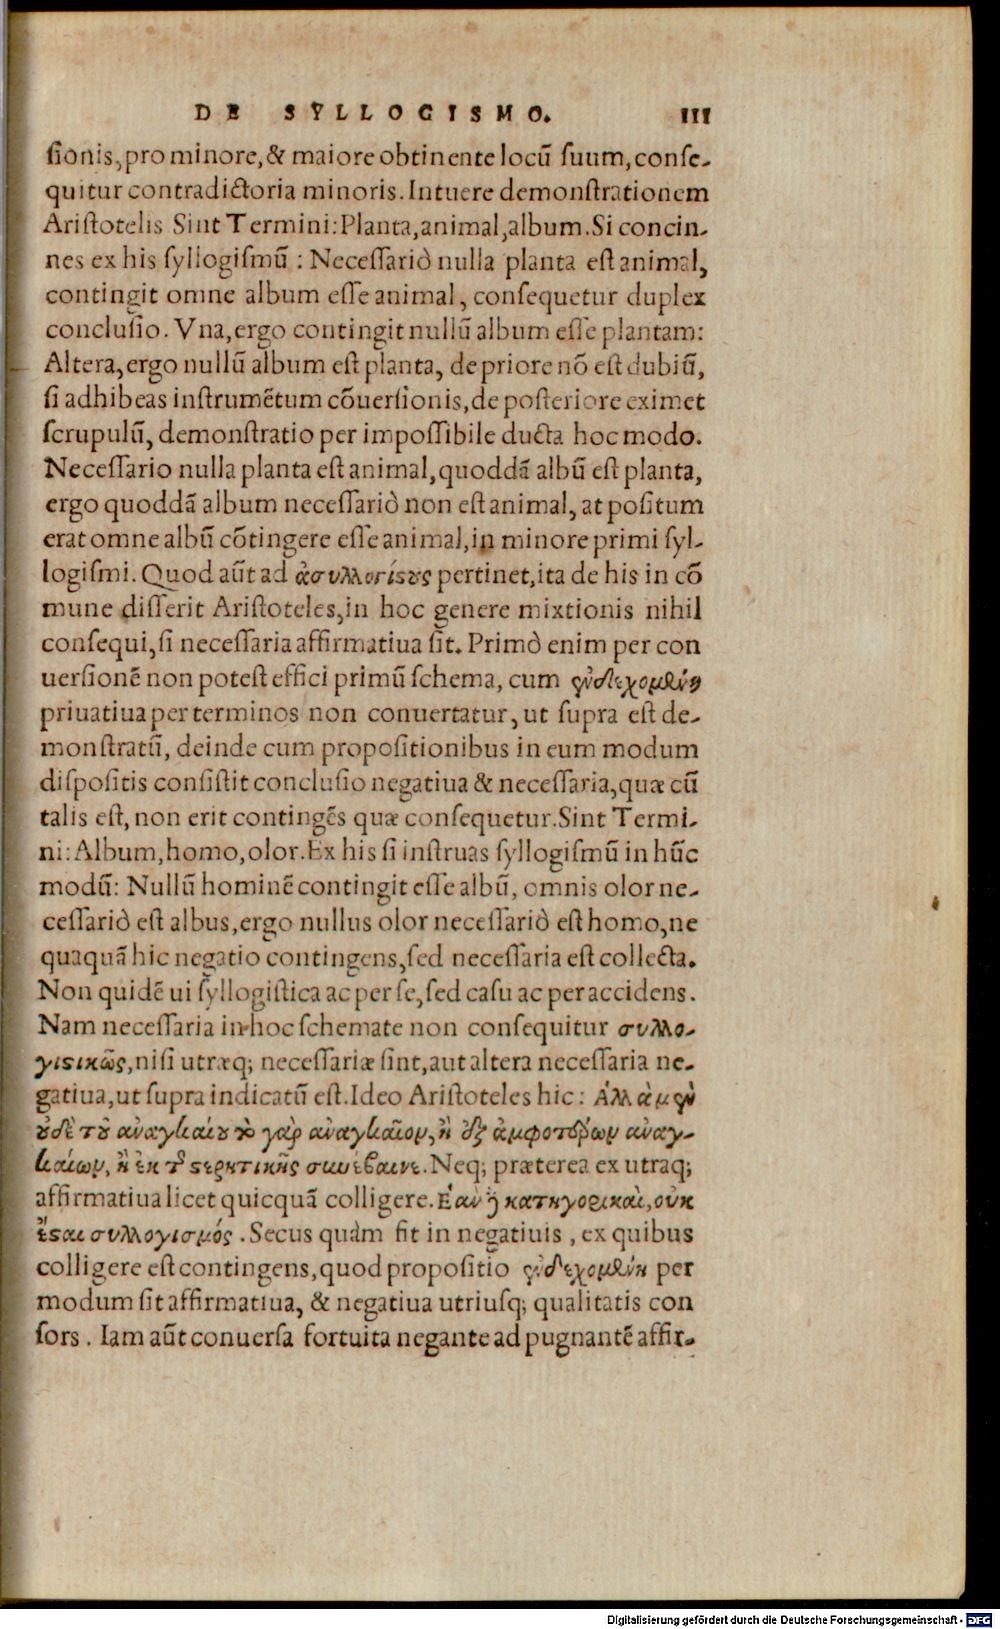 DE SYLLOGISMO. 111
sionis, pro minore, & maiore obtinente locũ suum, conse-
quitur contradictoria minoris. Intuere demonstrationem
Aristotelis Sint Termini: Planta, animal, album. Si concin-
nes ex his syllogismũ : Necessariò nulla planta est animal,
contingit omne album esse animal, consequetur duplex
conclusio. Vna, ergo contingit nullũ album esse plantam:
Altera, ergo nullũ album est planta, de priore nõ est dubiũ,
si adhibeas instrumẽtum cõuersionis, de posteriore eximet
scrupulũ, demonstratio per impossibile ducta hoc modo.
Necessario nulla planta est animal, quoddã albũ est planta,
ergo quoddã album necessariò non est animal, at positum
erat omne albũ cõtingere esse animal, in minore primi syl-
logismi. Quod aũt ad ἀσυλλογίστους pertinet, ita de his in cõ
mune disserit Aristoteles, in hoc genere mixtionis nihil
consequi, si necessaria affirmatiua sit. Primò enim per con
uersionẽ non potest effici primũ schema, cum ἐνδεχομένη
priuatiua per terminos non conuertatur, ut supra est de-
monstratũ, deinde cum propositionibus in eum modum
dispositis consistit conclusio negatiua & necessaria, quæ cũ
talis est, non erit contingẽs quæ consequetur. Sint Termi-
ni: Album, homo, olor. Ex his si instruas syllogismũ in hũc
modũ: Nullũ hominẽ contingit esse albũ, omnis olor ne-
cessariò est albus, ergo nullus olor necessariò est homo, ne
quaquã hic negatio contingens, sed necessaria est collecta.
Non quidẽ ui syllogistica ac per se, sed casu ac per accidens.
Nam necessaria in hoc schemate non consequitur συλλο-
γιστικῶς, nisi utræq; necessariæ sint, aut altera necessaria ne-
gatiua, ut supra indicatũ est. Ideo Aristoteles hic: Ἀλλὰ μὴν
οὐδὲ τοῦ ἀναγκαίου τὸ γὰρ ἀναγκαῖον, ἢ ἐξ ἀμφοτέρων ἀναγ-
καίων, ἢ ἐκ τῆς στερητικῆς συνέβαινε. Neq; præterea ex utraq;
affirmatiua licet quicquã colligere. Ἐὰν ᾖ κατηγορικαὶ, οὐκ
ἔσται συλλογισμός. Secus quàm fit in negatiuis, ex quibus
colligere est contingens, quod propositio ἐνδεχομένη per
modum sit affirmatiua, & negatiua utriusq; qualitatis con
sors. Iam aũt conuersa fortuita negante ad pugnantẽ affir-
Digitalisierung gefördert durch die Deutsche Forschungsgemeinschaft - DFG